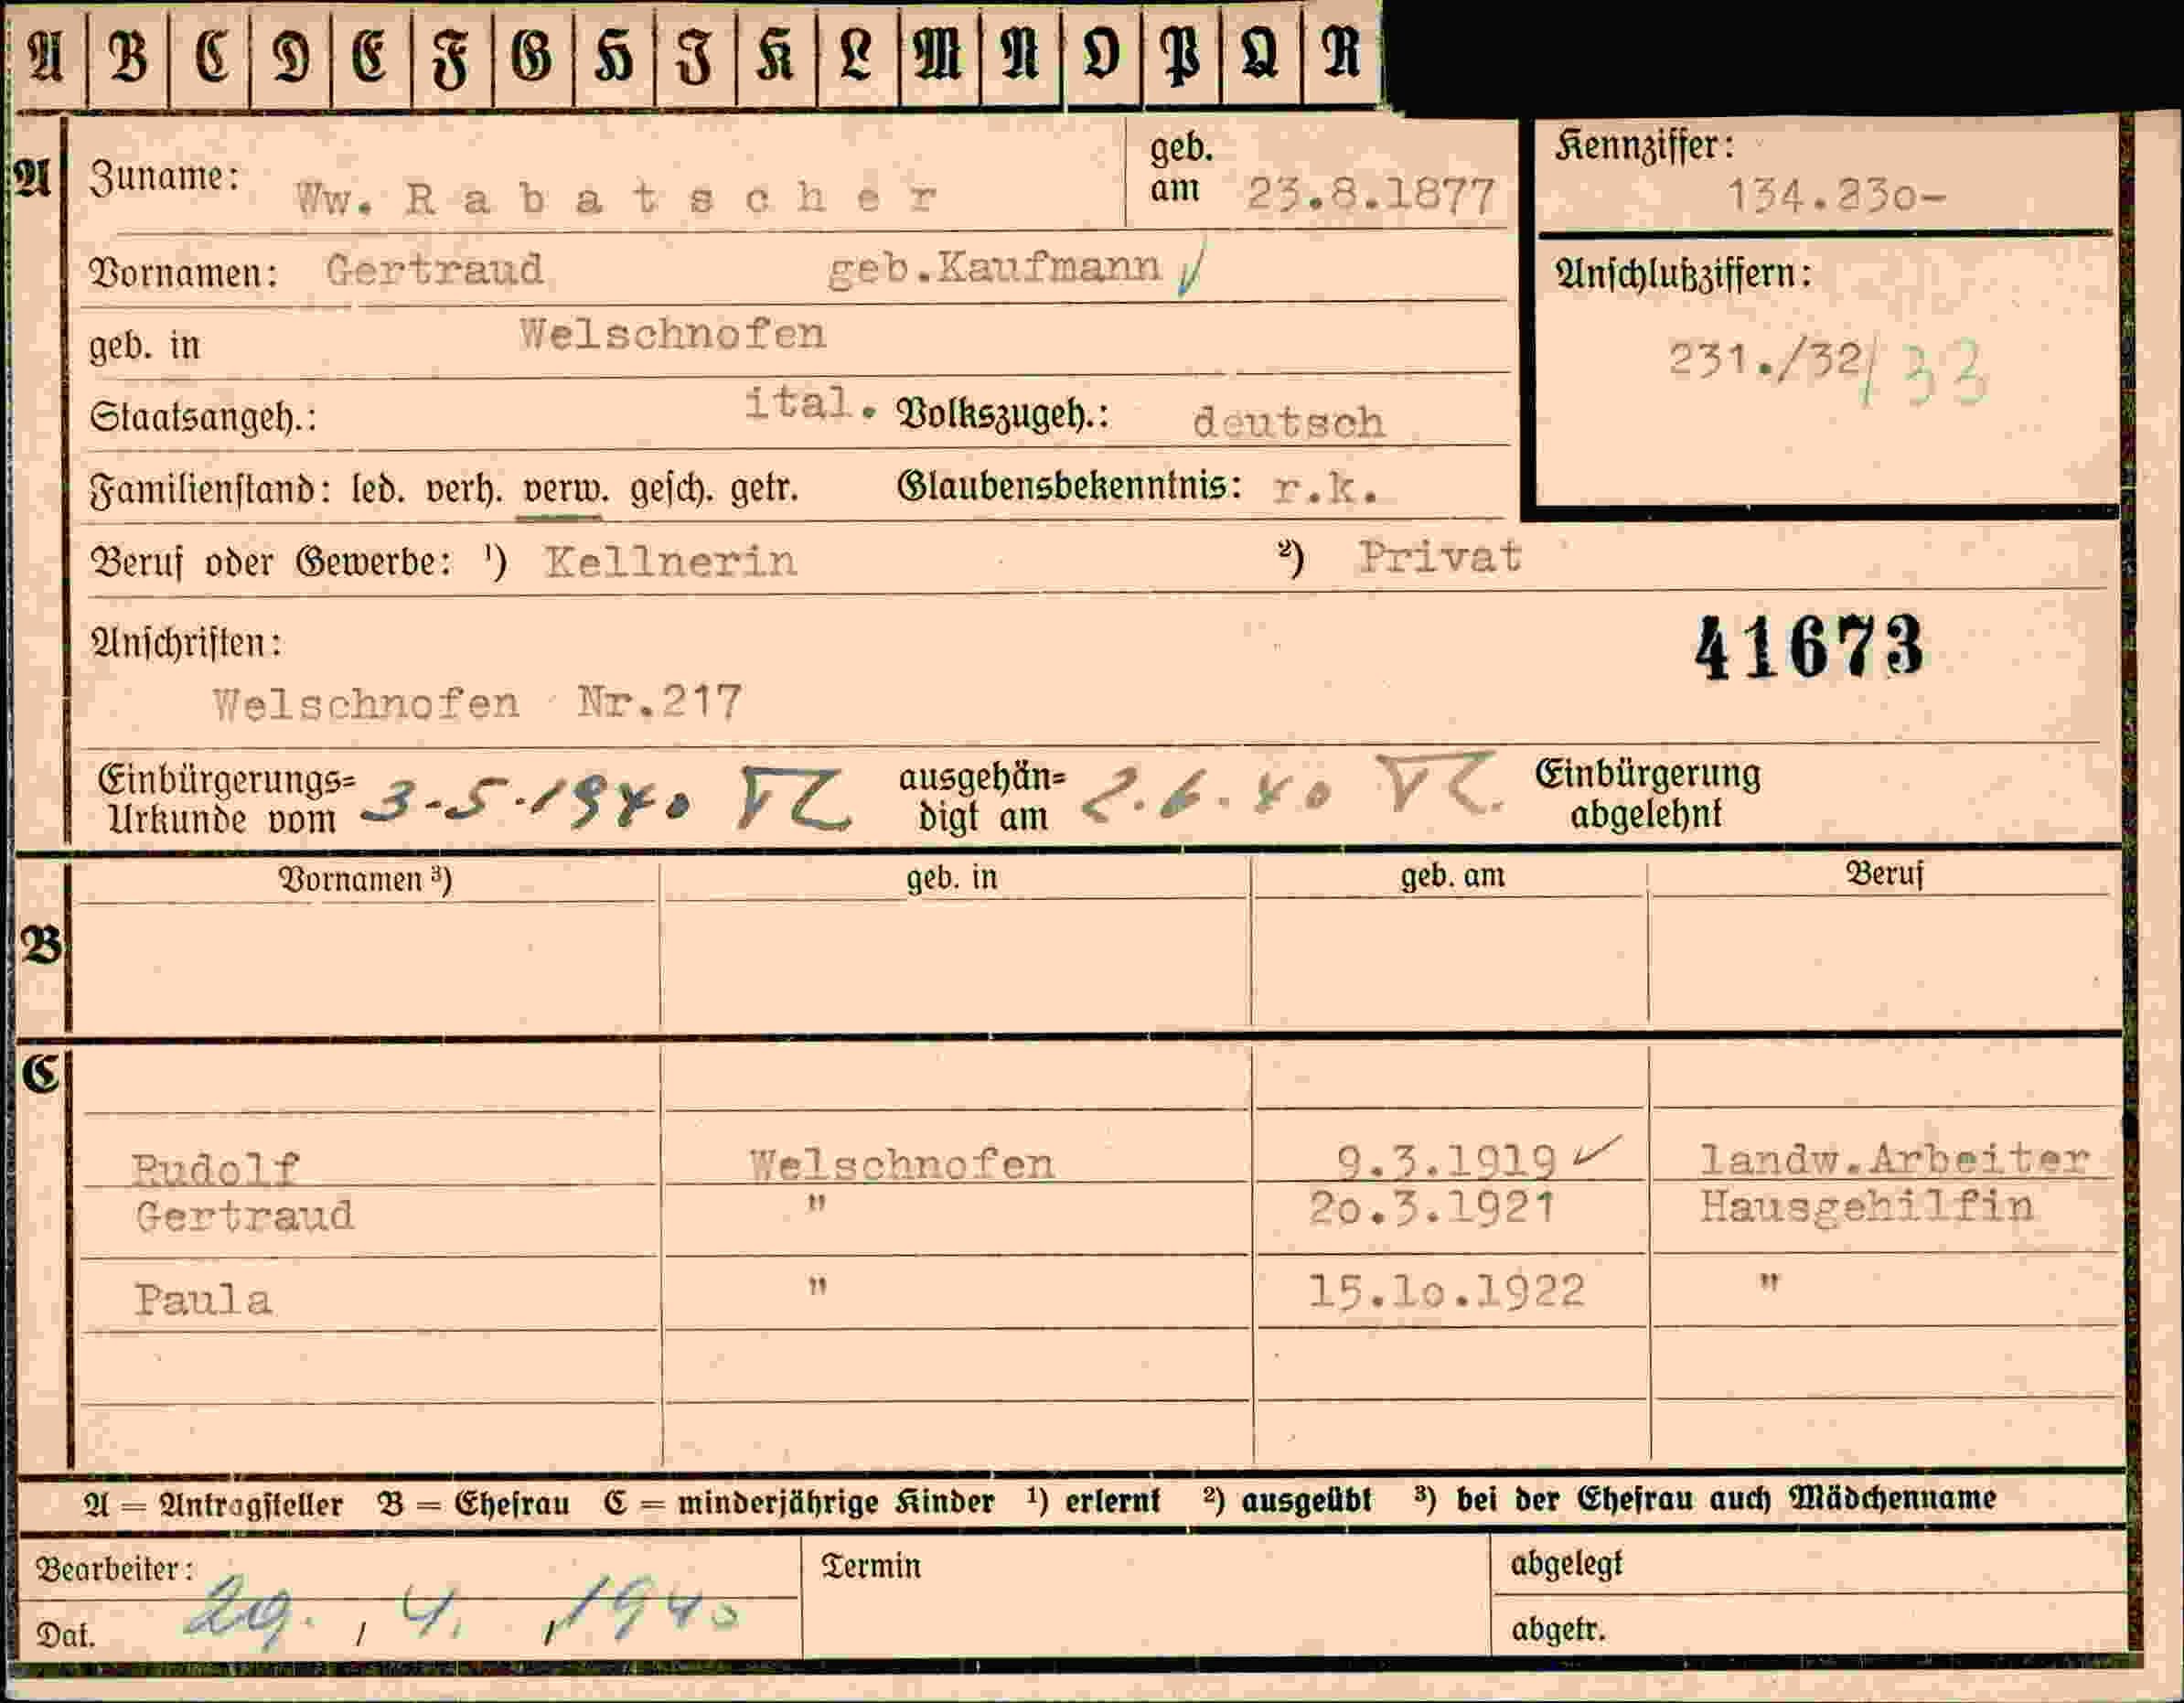 A B C D E F G H I K L M N O P Q R
A Zuname: Ww. R a b a t s c h e r geb. am 23.8.1877
Kennziffer: 134.230-
Vornamen: Gertraud geb.Kaufmann
Anschlußziffern:
231./32/33
geb. in Welschnofen
Staatsangeh.: ital. Volkszugeh.: deutsch
Familienstand: led. verh. verw. gesch. getr. Glaubensbekenntnis: r.k.
Beruf oder Gewerbe: ¹) Kellnerin ²) Privat
Anschriften:
41673
Welschnofen Nr.217
Einbürgerungs=
Urkunde vom 3-5-1940
ausgehän=
digt am 2.6.40
Einbürgerung
abgelehnt
Vornamen ³) geb. in geb. am Beruf
B
C
Rudolf Welschnofen 9.3.1919 landw.Arbeiter
Gertraud " 2o.3.1921 Hausgehilfin
Paula " 15.1o.1922 "
A = Antragsteller B = Ehefrau C = minderjährige Kinder ¹) erlernt ²) ausgeübt ³) bei der Ehefrau auch Mädchenname
Bearbeiter: Termin abgelegt
Dat. 29. / 4. / 1940 abgetr.